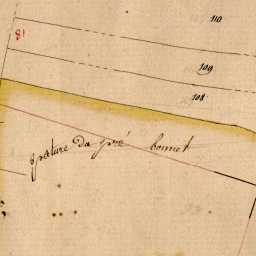 110
109
108
pature du pré bonnet